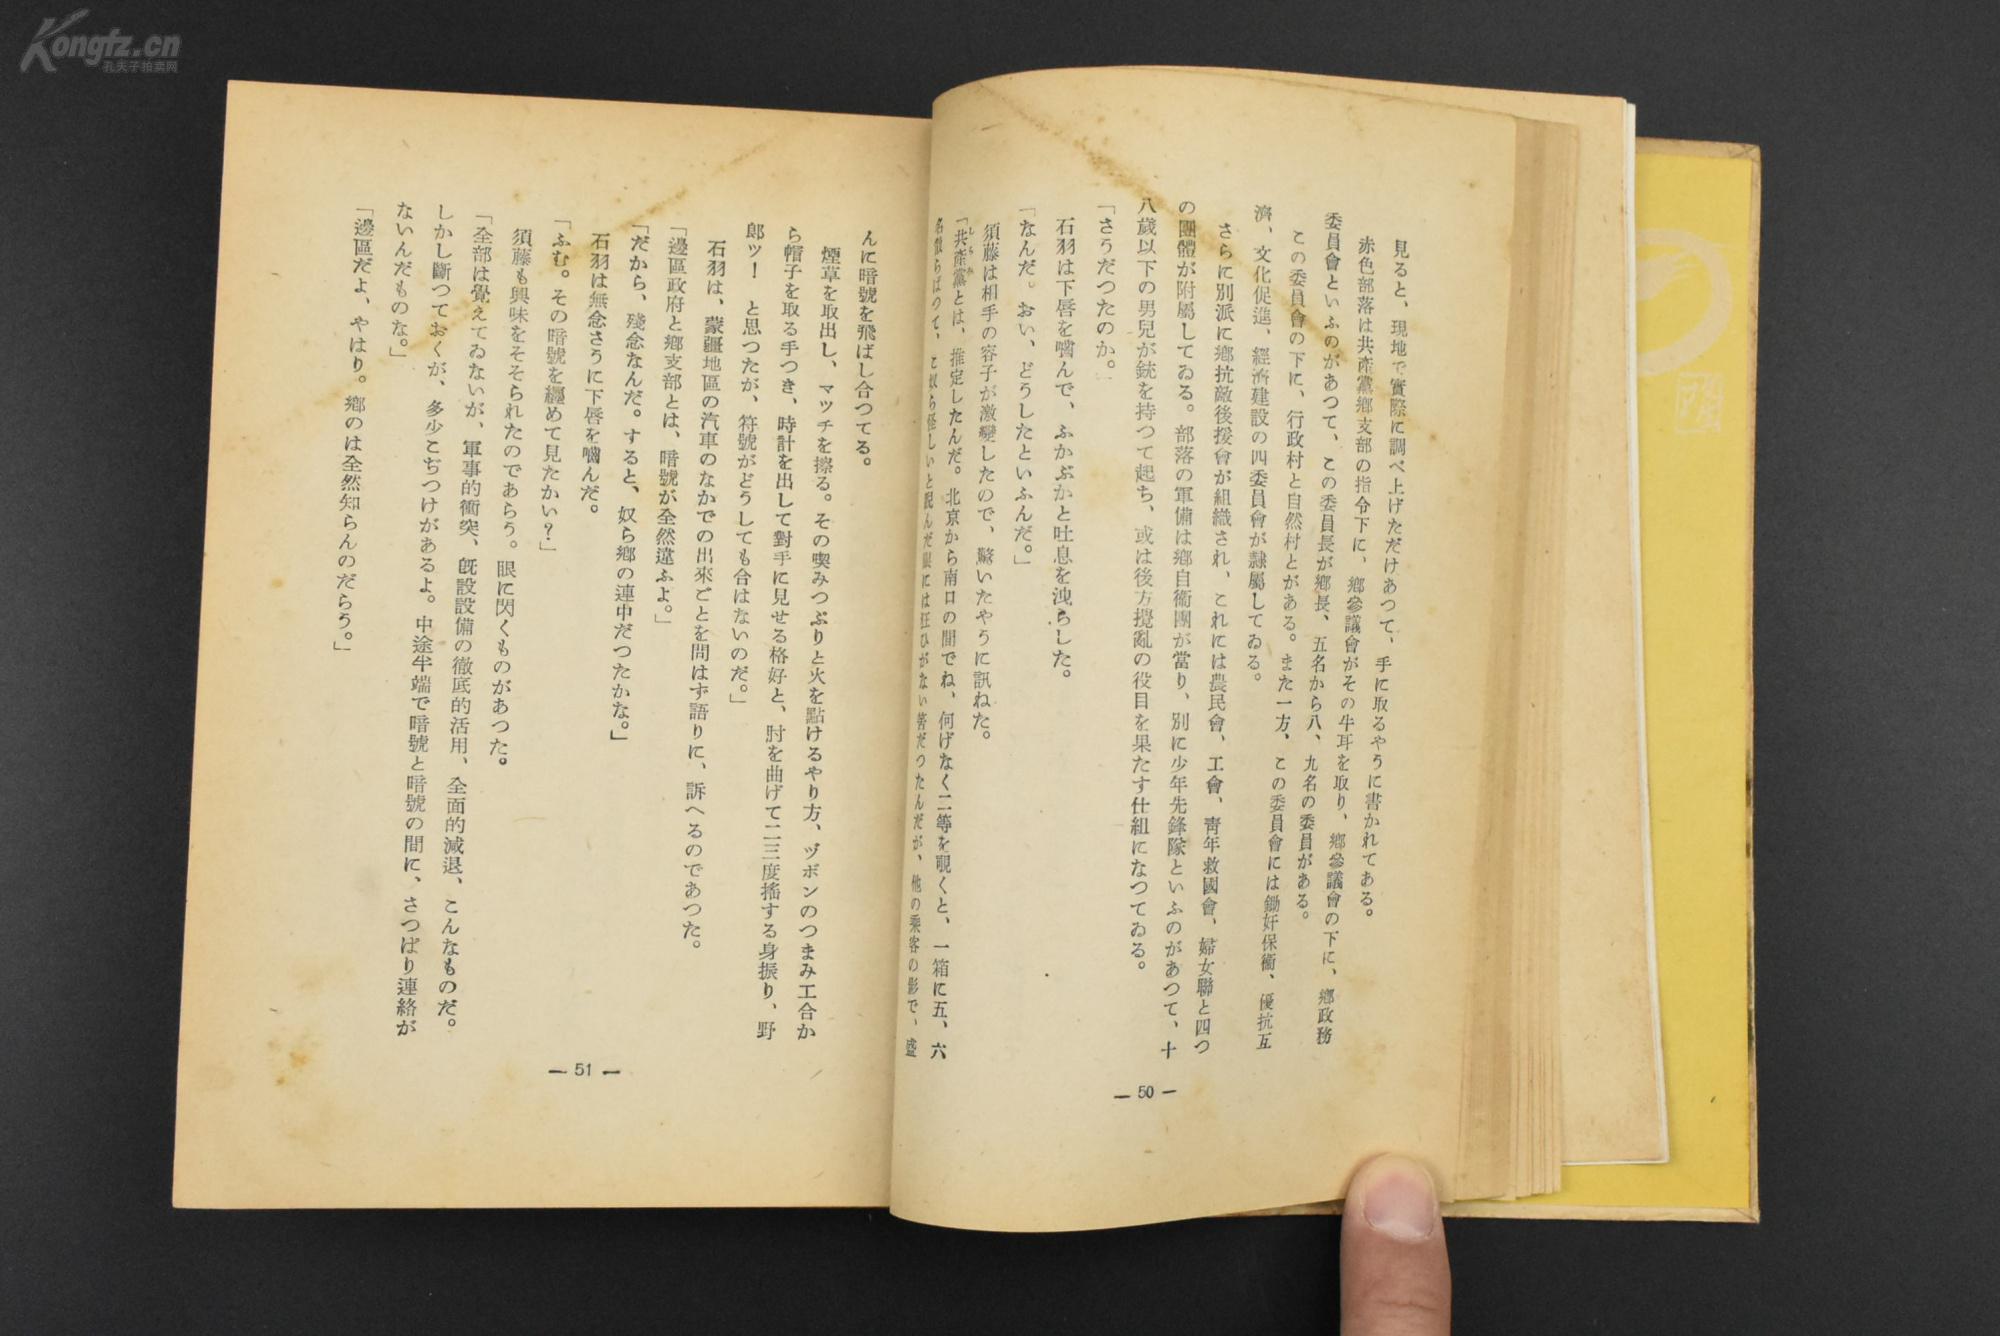 Kongfz.cn
孔夫子拍卖网
見ると、現地で實際に調べ上げただけあつて、手に取るやうに書かれてある。
赤色部落は共產黨鄕支部の指令下に、鄕參議會がその牛耳を取り、鄕參議會の下に、鄕政務
委員會といふのがあつて、この委員長が鄕長、五名から八、九名の委員がある。
この委員會の下に、行政村と自然村とがある。また一方、この委員會には鋤奸保衞、優抗互
濟、文化促進、經濟建設の四委員會が隸屬してゐる。
さらに別派に鄕抗敵後援會が組織され、これには農民會、工會、靑年救國會、婦女聯と四つ
の團體が附屬してゐる。部落の軍備は鄕自衞團が當り、別に少年先鋒隊といふのがあつて、十
八歲以下の男兒が銃を持つて起ち、或は後方攪亂の役目を果たす仕組になつてゐる。
「さうだつたのか。
石羽は下唇を嚙んで、ふかぶかと吐息を洩らした。
「なんだ。おい、どうしたといふんだ。」
須藤は相手の容子が激變したので、驚いたやうに訊ねた。
「共產黨とは、推定したんだ。北京から南口の間でね、何げなく二等を覗くと、一箱に五、六
名散らばつて、こ奴ら怪しいと睨んだ眼には狂ひがない筈だつたんだが、他の乘客の影で、盛
— 50 —
んに暗號を飛ばし合つてる。
煙草を取出し、マッチを擦る。その喫みつぷりと火を點けるやり方、ヅボンのつまみ工合か
ら帽子を取る手つき、時計を出して對手に見せる格好と、肘を曲げて二三度搖する身振り、野
郞ッ！　と思つたが、符號がどうしても合はないのだ。」
石羽は、蒙疆地區の汽車のなかでの出來ごとを問はず語りに、訴へるのであつた。
「邊區政府と鄕支部とは、暗號が全然違ふよ。」
「だから、殘念なんだ。すると、奴ら鄕の連中だつたかな。」
石羽は無念さうに下唇を嚙んだ。
「ふむ。その暗號を纒めて見たかい？」
須藤も興味をそそられたのであらう。眼に閃くものがあつた。
「全部は覺えてゐないが、軍事的衝突、旣設設備の徹底的活用、全面的減退、こんなものだ。
しかし斷つておくが、多少こぢつけがあるよ。中途半端で暗號と暗號の間に、さつぱり連絡が
ないんだものな。」
「邊區だよ、やはり。鄕のは全然知らんのだらう。」
— 51 —